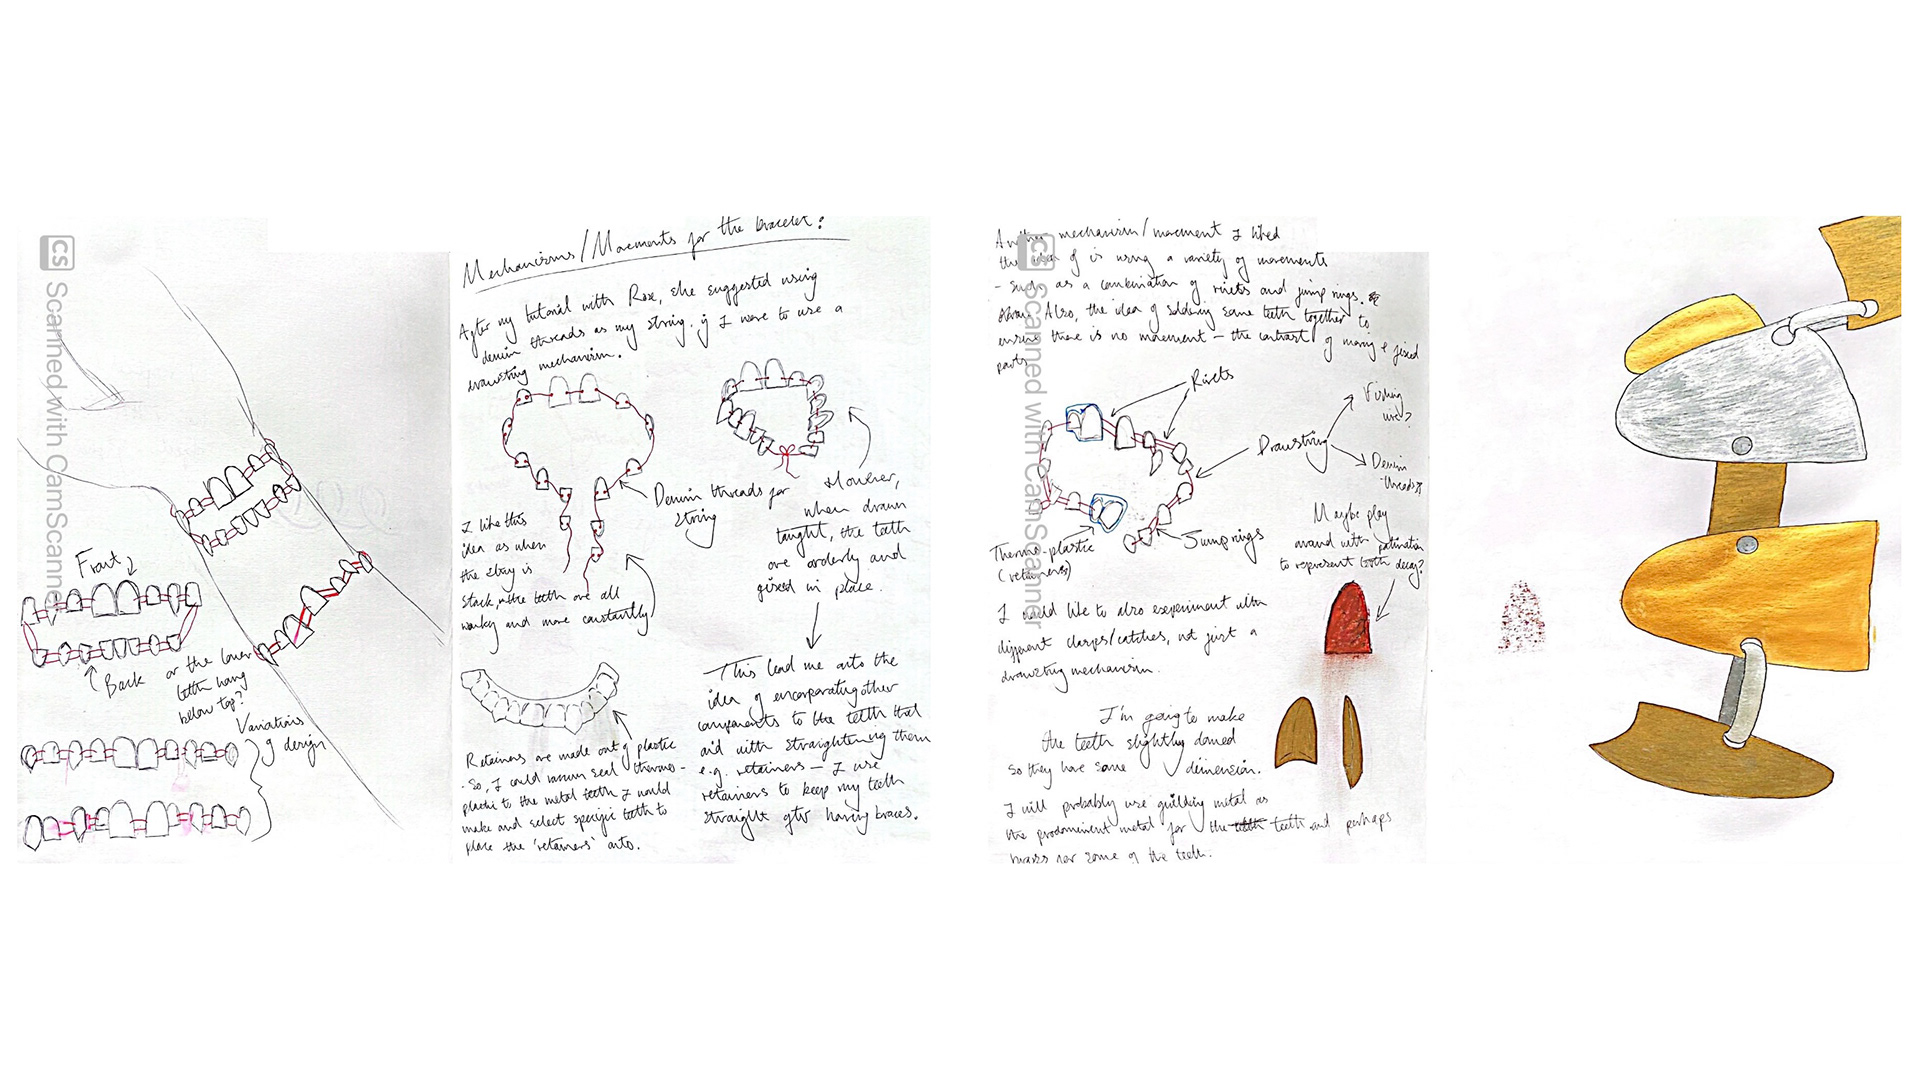 CS Scanned with CamScanner
Front
Back
or the lower
teeth hang
below top?
Variations
of design
Mechanisms/Movements for the bracelet:
After my tutorial with Rox, she suggested using
denim threads as my string. if I were to use a
drawstring mechanism.
I like this
idea as when
the string is
slack, the teeth are all
wonky and move constantly
Denim threads for
string
However,
when drawn
taught, the teeth
are orderly and
fixed in place.
Retainers are made out of plastic
- So, I could vacuum seal thermo-
plastic to the metal teeth I would
make and select specific teeth to
place the 'retainers' onto.
This lead me onto the
idea of encorporating other
components to the teeth that
aid with straightening them
e.g. retainers – I use
retainers to keep my teeth
straight after having braces.
CS Scanned with CamScanner
Another mechanism/movement I liked
the idea of is using a variety of movements
- such as a combination of rivets and jump rings.
Also, the idea of soldering some teeth together to
ensure there is no movement – the contrast of moving & fixed
parts
Rivets
Drawstring
Fishing
wire?
Denim
threads?
Jump rings
Thermo-plastic
(retainers)
Maybe play
around with patination
to represent tooth decay?
I would like to also experiment with
different clasps/catches, not just a
drawstring mechanism.
I'm going to make
the teeth slightly domed
so they have some dimension.
I will probably use guilding metal as
the prodominent metal for the teeth teeth and perhaps
brass for some of the teeth.